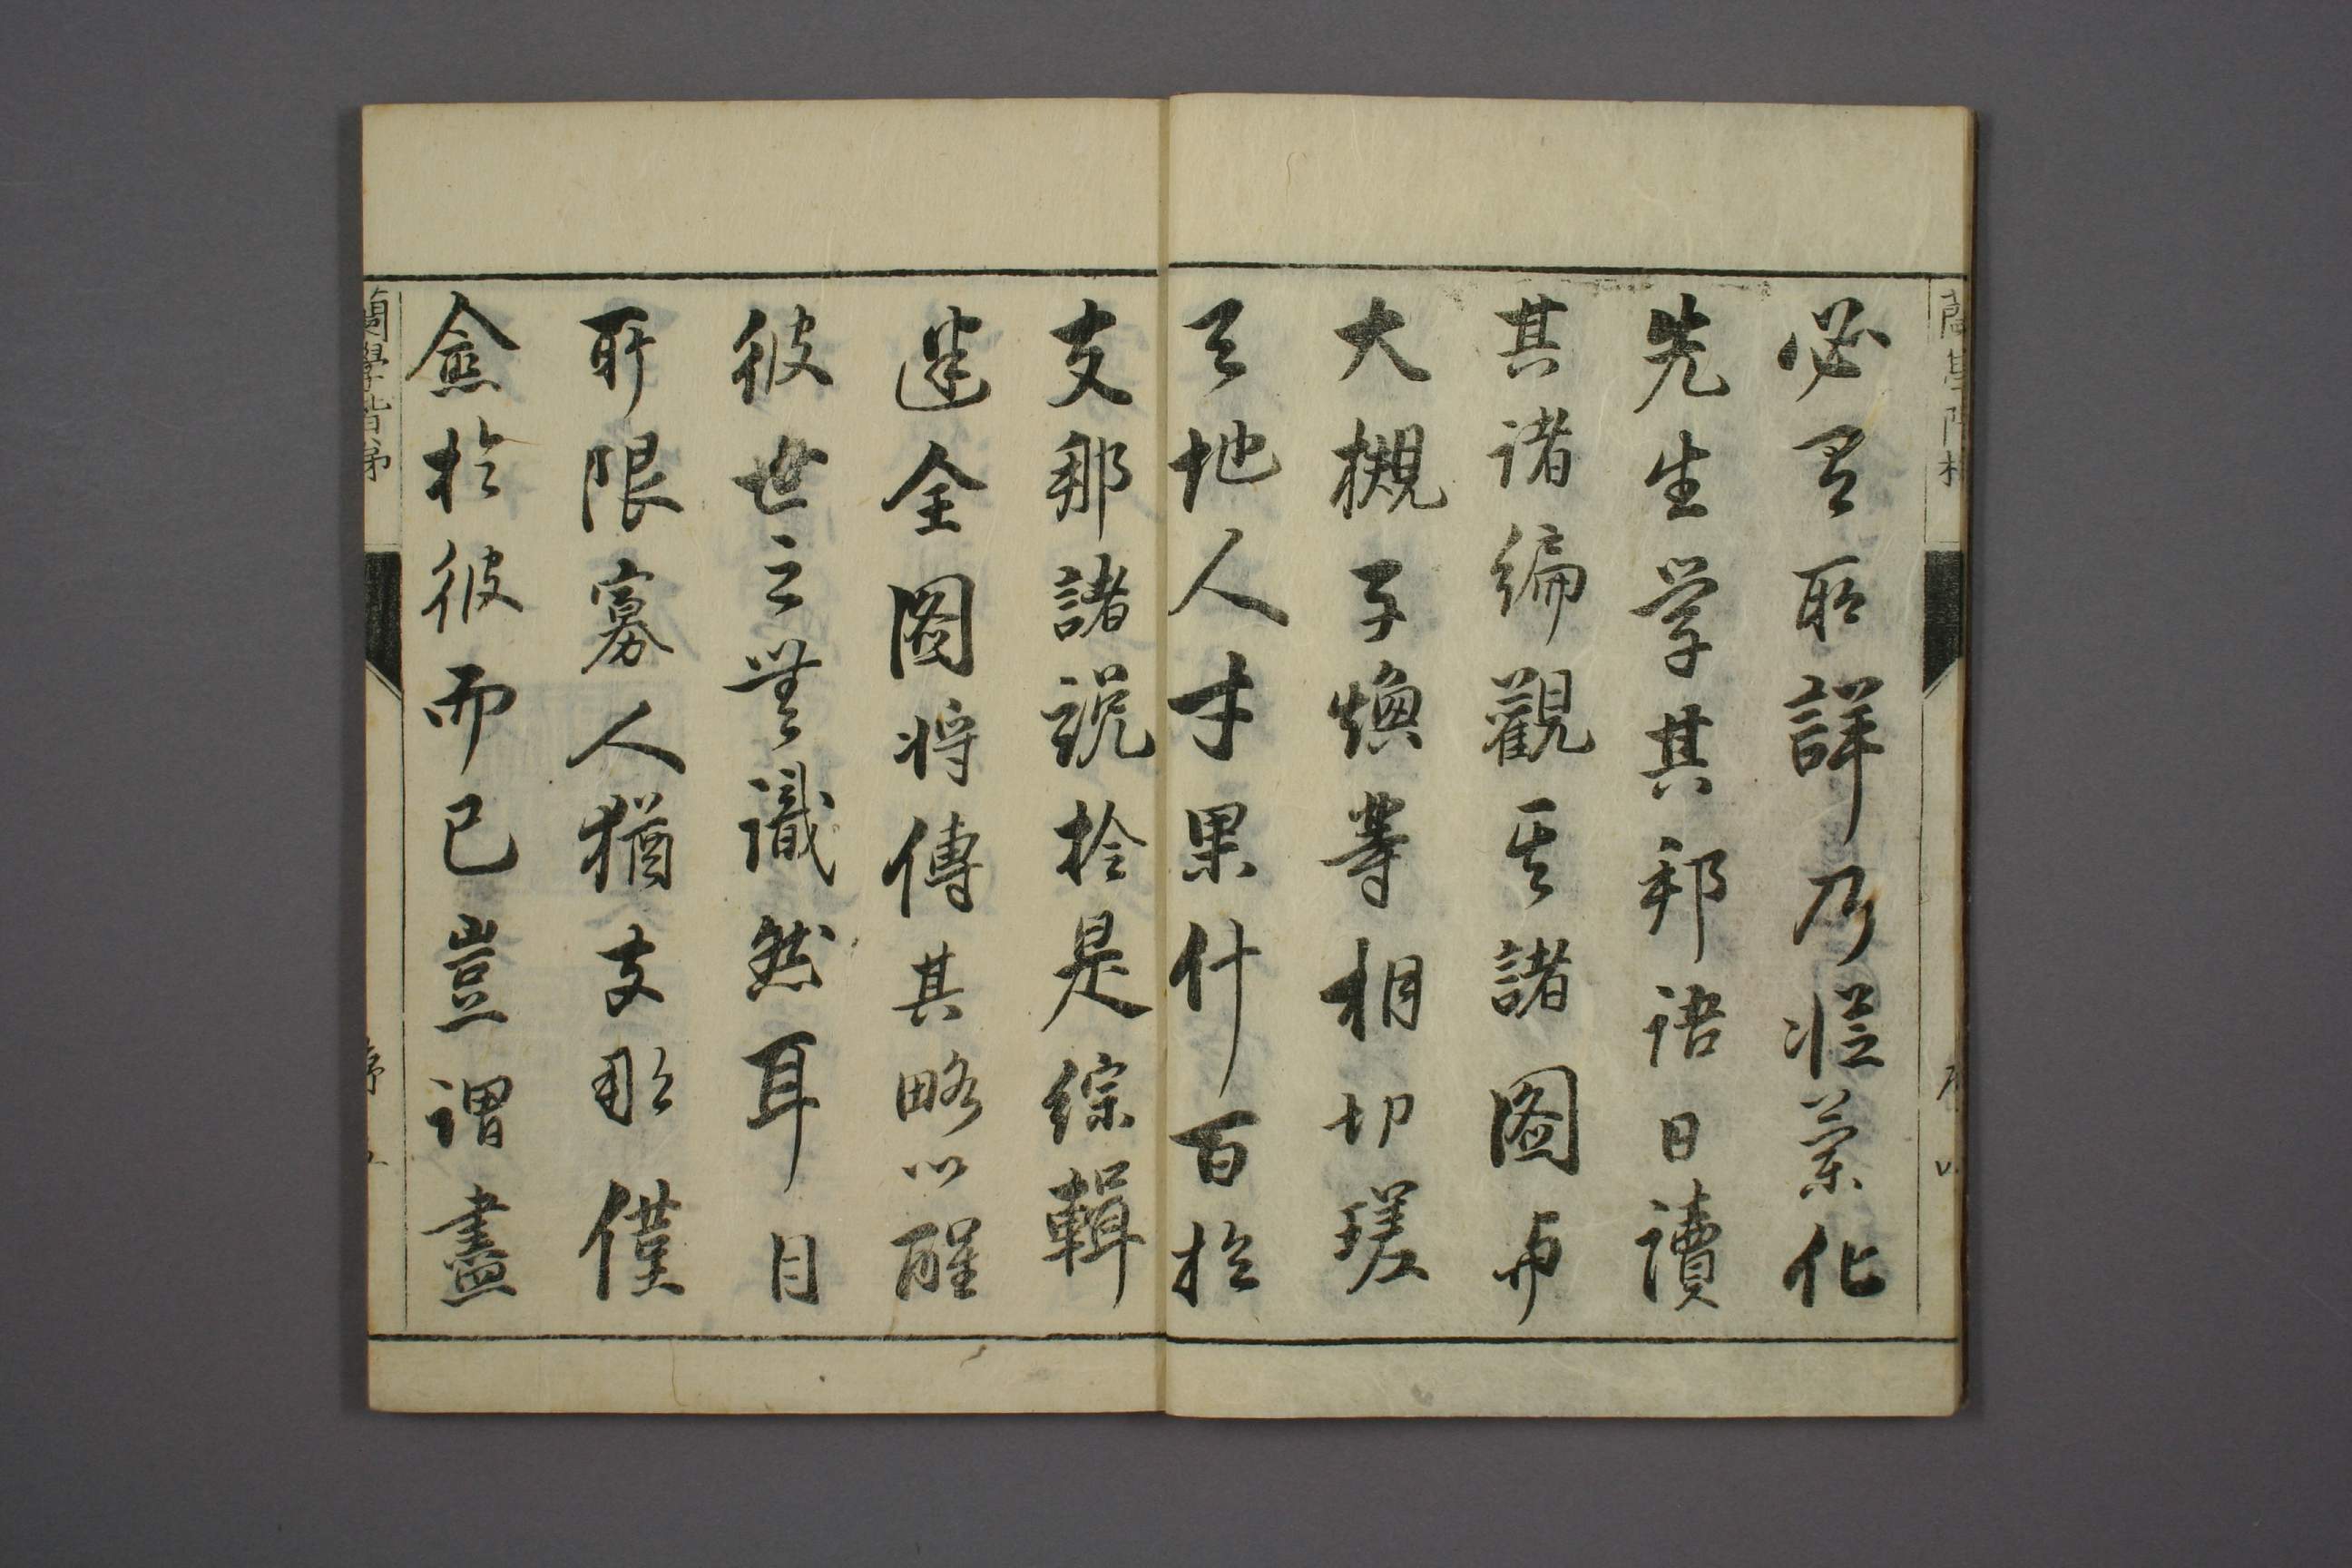 蘭學階梯 序 四
必有所詳乃從蘭化
先生学其邦語日讀
其諸編觀其諸圖與
大槻子煥等相切瑳
天地人才果什百於
支那諸説於是綜輯
逮全圖将傳其略以醒
彼世之無識然耳目
所限寡人猶支那僅
愈於彼而已豈謂盡
蘭學階梯 序 五